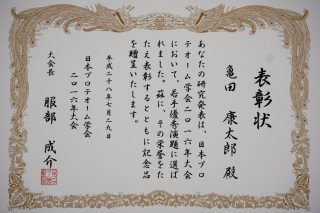 表彰状
亀田 康太郎 殿
あなたの研究発表は、日本プロ
テオーム学会二〇一六年大会
において、若手優秀演題に選ば
れました。茲に、その栄誉をた
たえ表彰するとともに記念品
を贈呈いたします。
平成二十八年七月二九日
日本プロテオーム学会
二〇一六年大会
大会長 服部 成介